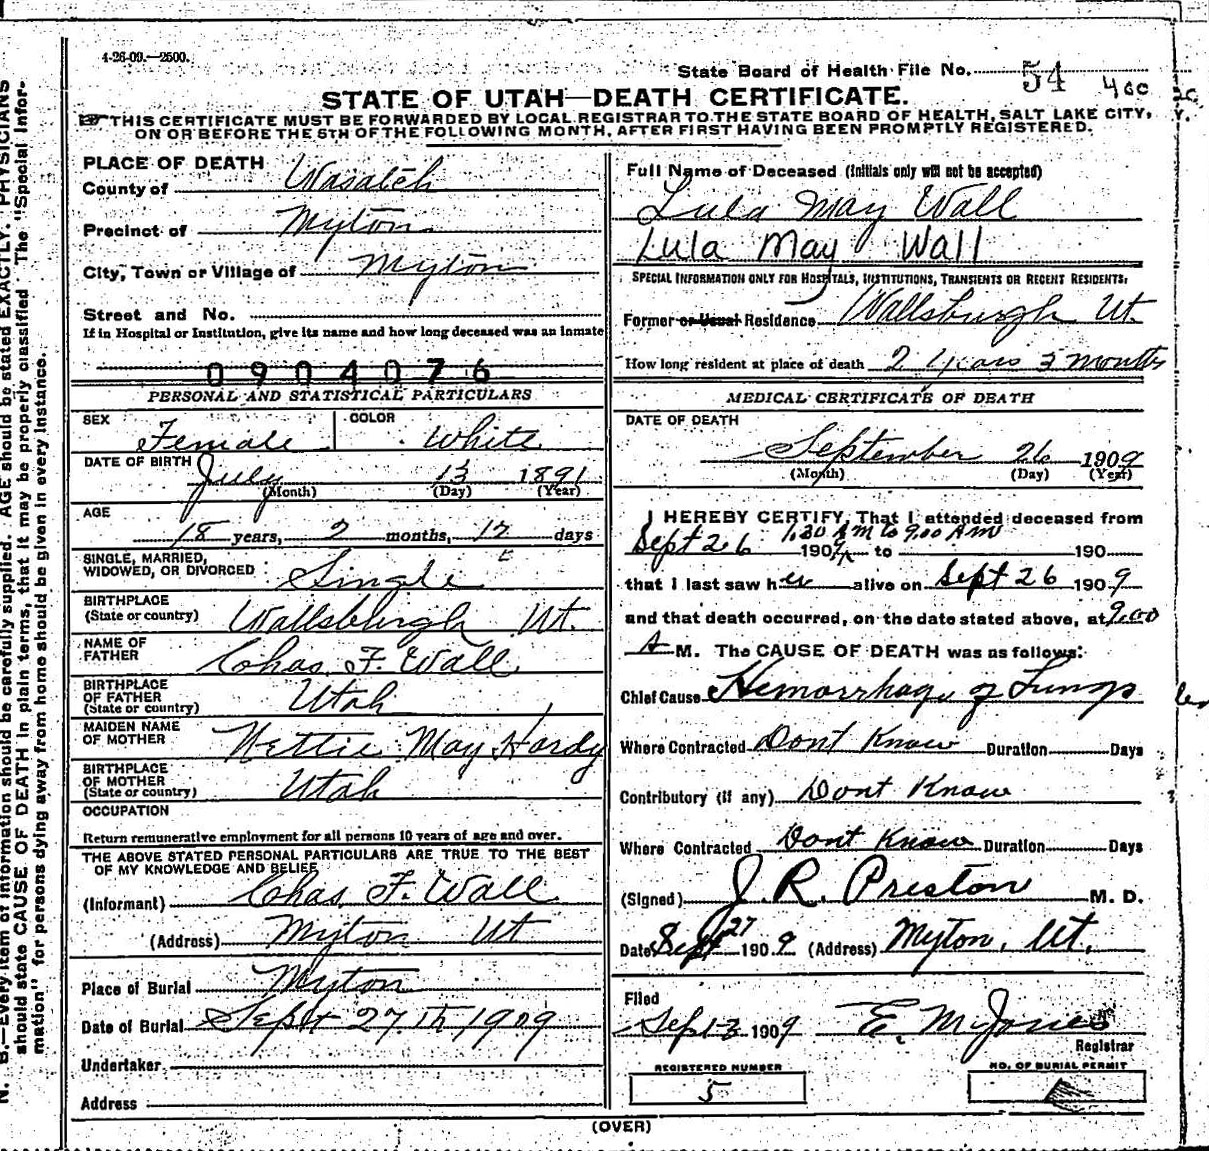 4-26-09.—2500.
State Board of Health File No. 54
STATE OF UTAH—DEATH CERTIFICATE.
THIS CERTIFICATE MUST BE FORWARDED BY LOCAL REGISTRAR TO THE STATE BOARD OF HEALTH, SALT LAKE CITY,
ON OR BEFORE THE 5TH OF THE FOLLOWING MONTH, AFTER FIRST HAVING BEEN PROMPTLY REGISTERED.
PLACE OF DEATH
County of Wasatch
Precinct of Myton
City, Town or Village of Myton
Street and No.
If in Hospital or Institution, give its name and how long deceased was an inmate
0904076
PERSONAL AND STATISTICAL PARTICULARS
SEX Female COLOR White
DATE OF BIRTH July 13 1891
(Month) (Day) (Year)
AGE
18 years, 2 months, 12 days
SINGLE, MARRIED,
WIDOWED, OR DIVORCED Single
BIRTHPLACE
(State or country) Wallsburgh Ut.
NAME OF
FATHER Chas. F. Wall
BIRTHPLACE
OF FATHER
(State or country) Utah
MAIDEN NAME
OF MOTHER Nettie May Hardy
BIRTHPLACE
OF MOTHER
(State or country) Utah
OCCUPATION
Return remunerative employment for all persons 10 years of age and over.
THE ABOVE STATED PERSONAL PARTICULARS ARE TRUE TO THE BEST
OF MY KNOWLEDGE AND BELIEF
(Informant) Chas. F. Wall
(Address) Myton Ut
Place of Burial Myton
Date of Burial Sept 27th 1909
Undertaker
Address
Full Name of Deceased (Initials only will not be accepted)
Lula May Wall
Lula May Wall
SPECIAL INFORMATION ONLY FOR HOSPITALS, INSTITUTIONS, TRANSIENTS OR RECENT RESIDENTS:
Former or Usual Residence Wallsburgh Ut.
How long resident at place of death 2 years 3 months
MEDICAL CERTIFICATE OF DEATH
DATE OF DEATH
September 26 1909
(Month) (Day) (Year)
I HEREBY CERTIFY, That I attended deceased from
1.30 AM to 9.00 AM
Sept 26 1909 to 190
that I last saw her alive on Sept 26 1909
and that death occurred, on the date stated above, at 9.00
A M. The CAUSE OF DEATH was as follows:
Chief Cause Hemorrhage of Lungs
Where Contracted Dont Know Duration Days
Contributory (if any) Dont Know
Where Contracted Dont Know Duration Days
(Signed) J. R. Preston M. D.
Date Sept 27 1909 (Address) Myton, Ut.
Filed
1909 E. M. Jones
Registrar
REGISTERED NUMBER
5
NO. OF BURIAL PERMIT
(OVER)
N. B.—Every item of information should be carefully supplied. AGE should be stated EXACTLY. PHYSICIANS
should state CAUSE OF DEATH in plain terms, that it may be properly classified The "Special Infor-
mation" for persons dying away from home should be given in every instance.